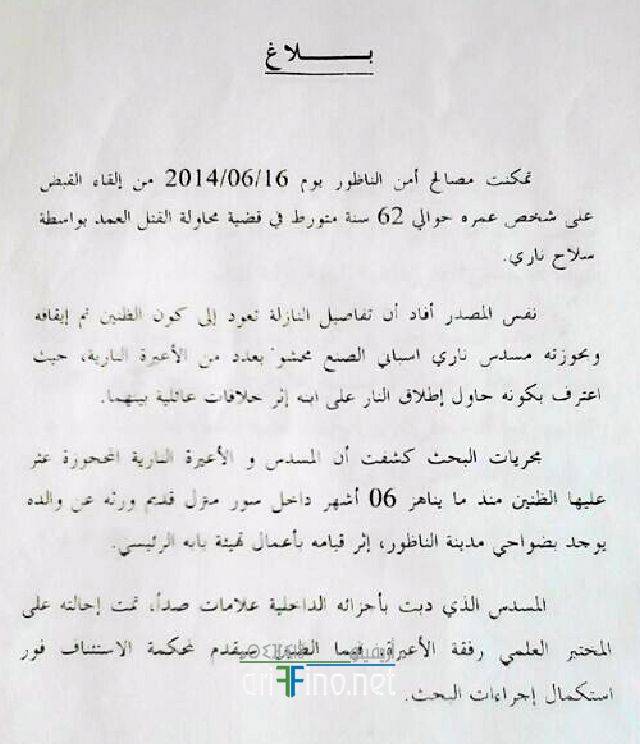 بـــــلاغ
تمكنت مصالح أمن الناظور يوم 2014/06/16 من إلقاء القبض
على شخص عمره حوالي 62 سنة متورط في قضية محاولة القتل العمد بواسطة
سلاح ناري.
نفس المصدر أفاد أن تفاصيل النازلة تعود إلى كون الظنين تم إيقافه
وبحوزته مسدس ناري اسباني الصنع محشو بعدد من الأعيرة النارية، حيث
اعترف بكونه حاول إطلاق النار على ابنه إثر خلافات عائلية بينهما.
مجريات البحث كشفت أن المسدس و الأعيرة النارية المحجوزة عثر
عليها الظنين منذ ما يناهز 06 أشهر داخل سور منزل قديم ورثه عن والده
يوجد بضواحي مدينة الناظور، إثر قيامه بأعمال تهيئة بابه الرئيسي.
المسدس الذي دبت بأجزائه الداخلية علامات صدأ، تمت إحالته على
المختبر العلمي رفقة الأعيرة، فيما الظنين سيقدم لمحكمة الاستئناف فور
استكمال إجراءات البحث.
أريفينو
ariFFino.net